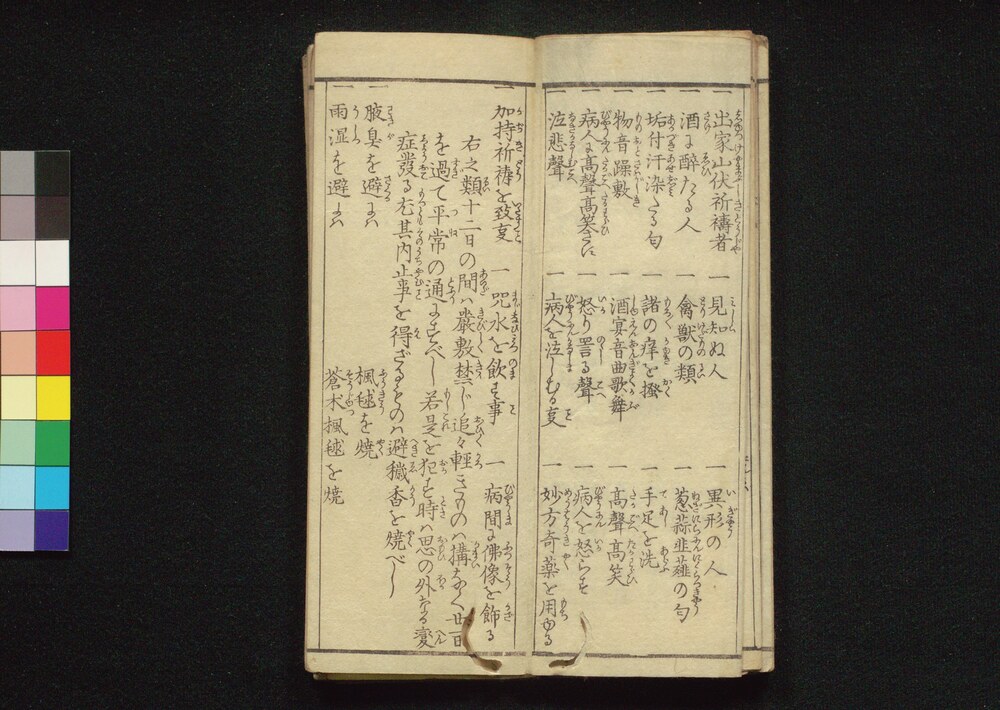 一 出家山伏祈禱者 一 見知ぬ人 一 異形の人
一 酒に醉たる人 一 禽獣の類 一 葱蒜韭薤の匂
一 垢付汗染たる匂 一 諸の痒を掻 一 手足を洗
一 物音躁敷 一 酒宴音曲歌舞 一 高聲高笑
一 病人に高聲高
一 怒り詈る聲 一 病人を怒らす
一 泣悲聲 一 病人を泣しむる㕝 一 妙方奇薬を用ゆる
一 加持祈禱を致㕝 一 咒水を飲す事 一 病間に佛像を飾る
右之類十二日の間ハ嚴敷禁じ追々輕きものハ構なく廿一日
を過て平常の通にすべし 若是を犯す時ハ思の外なる変
症發る尤其内止事を得ざるものハ避穢香を焼べし
一 腋臭を避にハ 楓毬を焼
一 雨湿を避にハ 蒼朮楓毬を焼